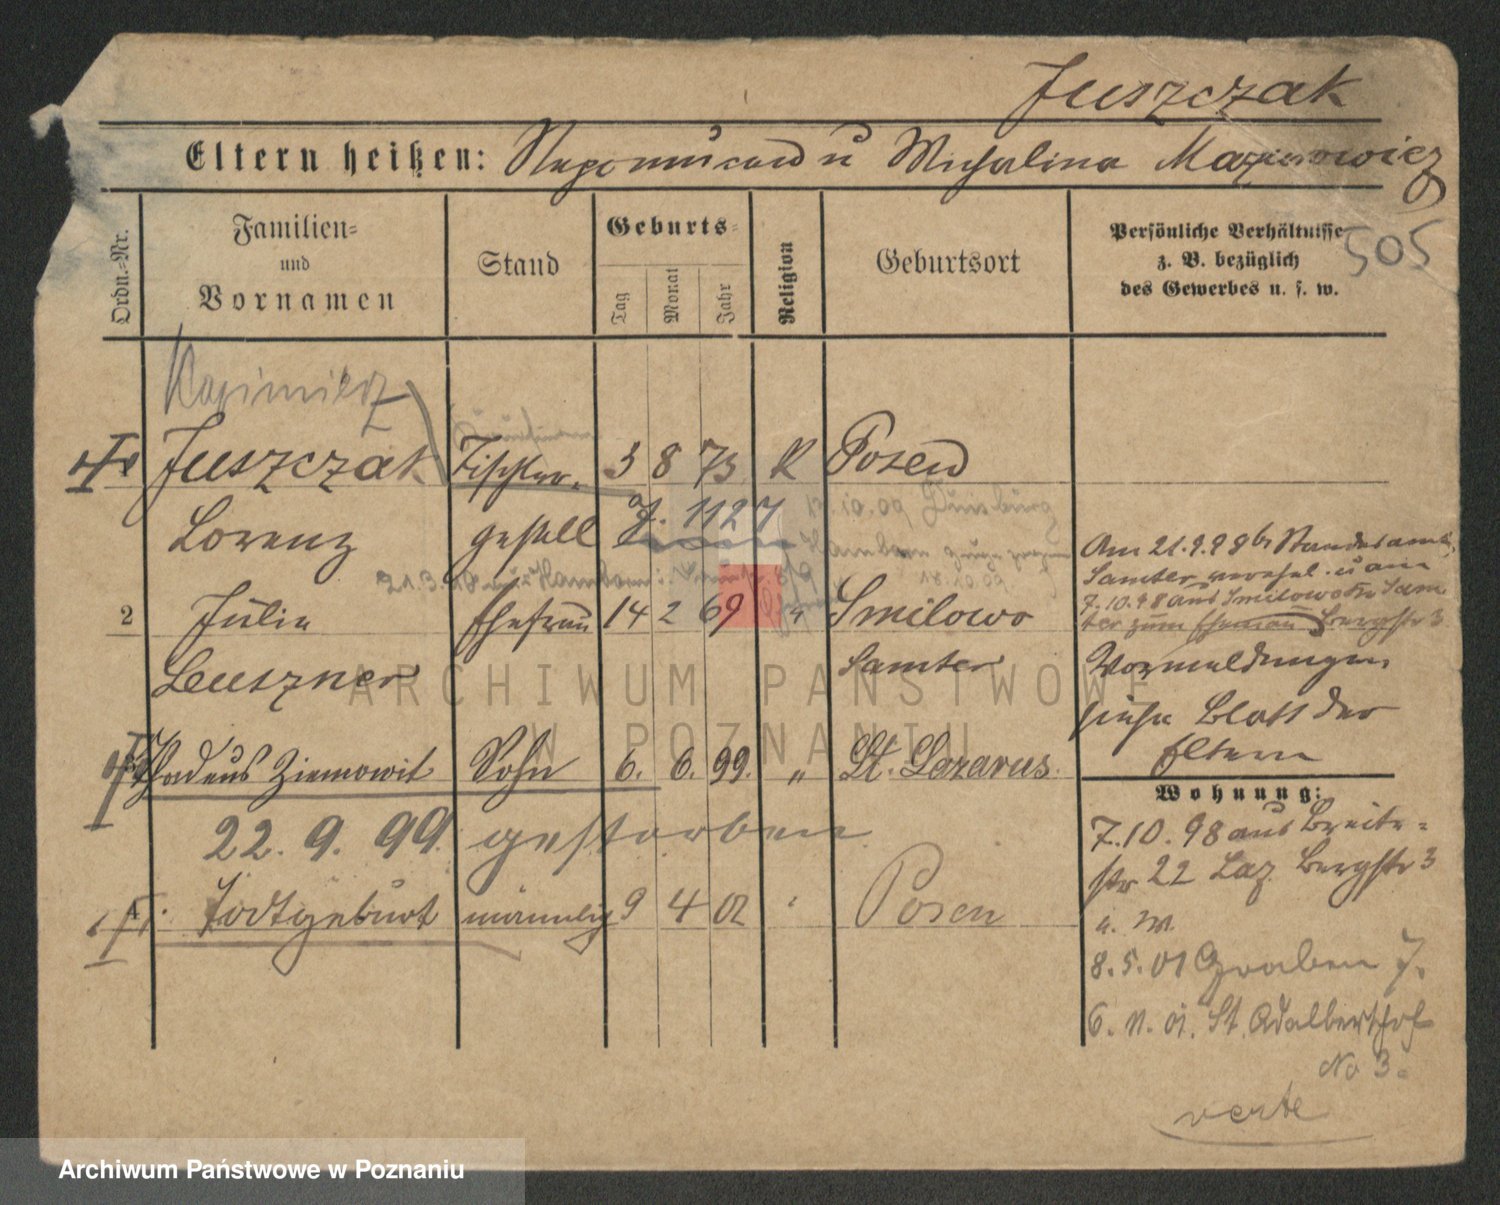 Juszczak
Eltern heißen: Nepomucend u Michalina Mazurowicz
505
Ordn.-Nr.
Familien- und Vornamen
Stand
Geburts-
Tag
Monat
Jahr
Religion
Geburtsort
Persönliche Verhältnisse
z. B. bezüglich
des Gewerbes u. s. w.
Kazimierz
Juszczak Tischler- 3 8 73 K Posen
Lorenz gesell J. 1127
12.10.09 Duisburg
Hamborn
18.10.09
21.3.
2 Julia Ehefrau 14 2 69 " Smilowo
Leuszner Samter
Thadeus Ziemowit Sohn 6. 6. 99. " St. Lazarus.
22. 9. 99. gestorben
4 Todtgeburt männlich 9 4 02 " Posen
Am 21.9.98 b. Standesamt
Samter u am
7.10.98 aus Smilowo Kr. Sam
ter zum Ehemann Bergstr 3
Vormeldungen
siehe Blatt der
Eltern
Wohnung:
7.10.98 aus Breite-
str 22 Laz. Bergstr 3
b. M.
8.5.01 Graben 7.
6.11.01. St. Adalberthof
No 3.
verte
ARCHIWUM PAŃSTWOWE
W POZNANIU
Archiwum Państwowe w Poznaniu